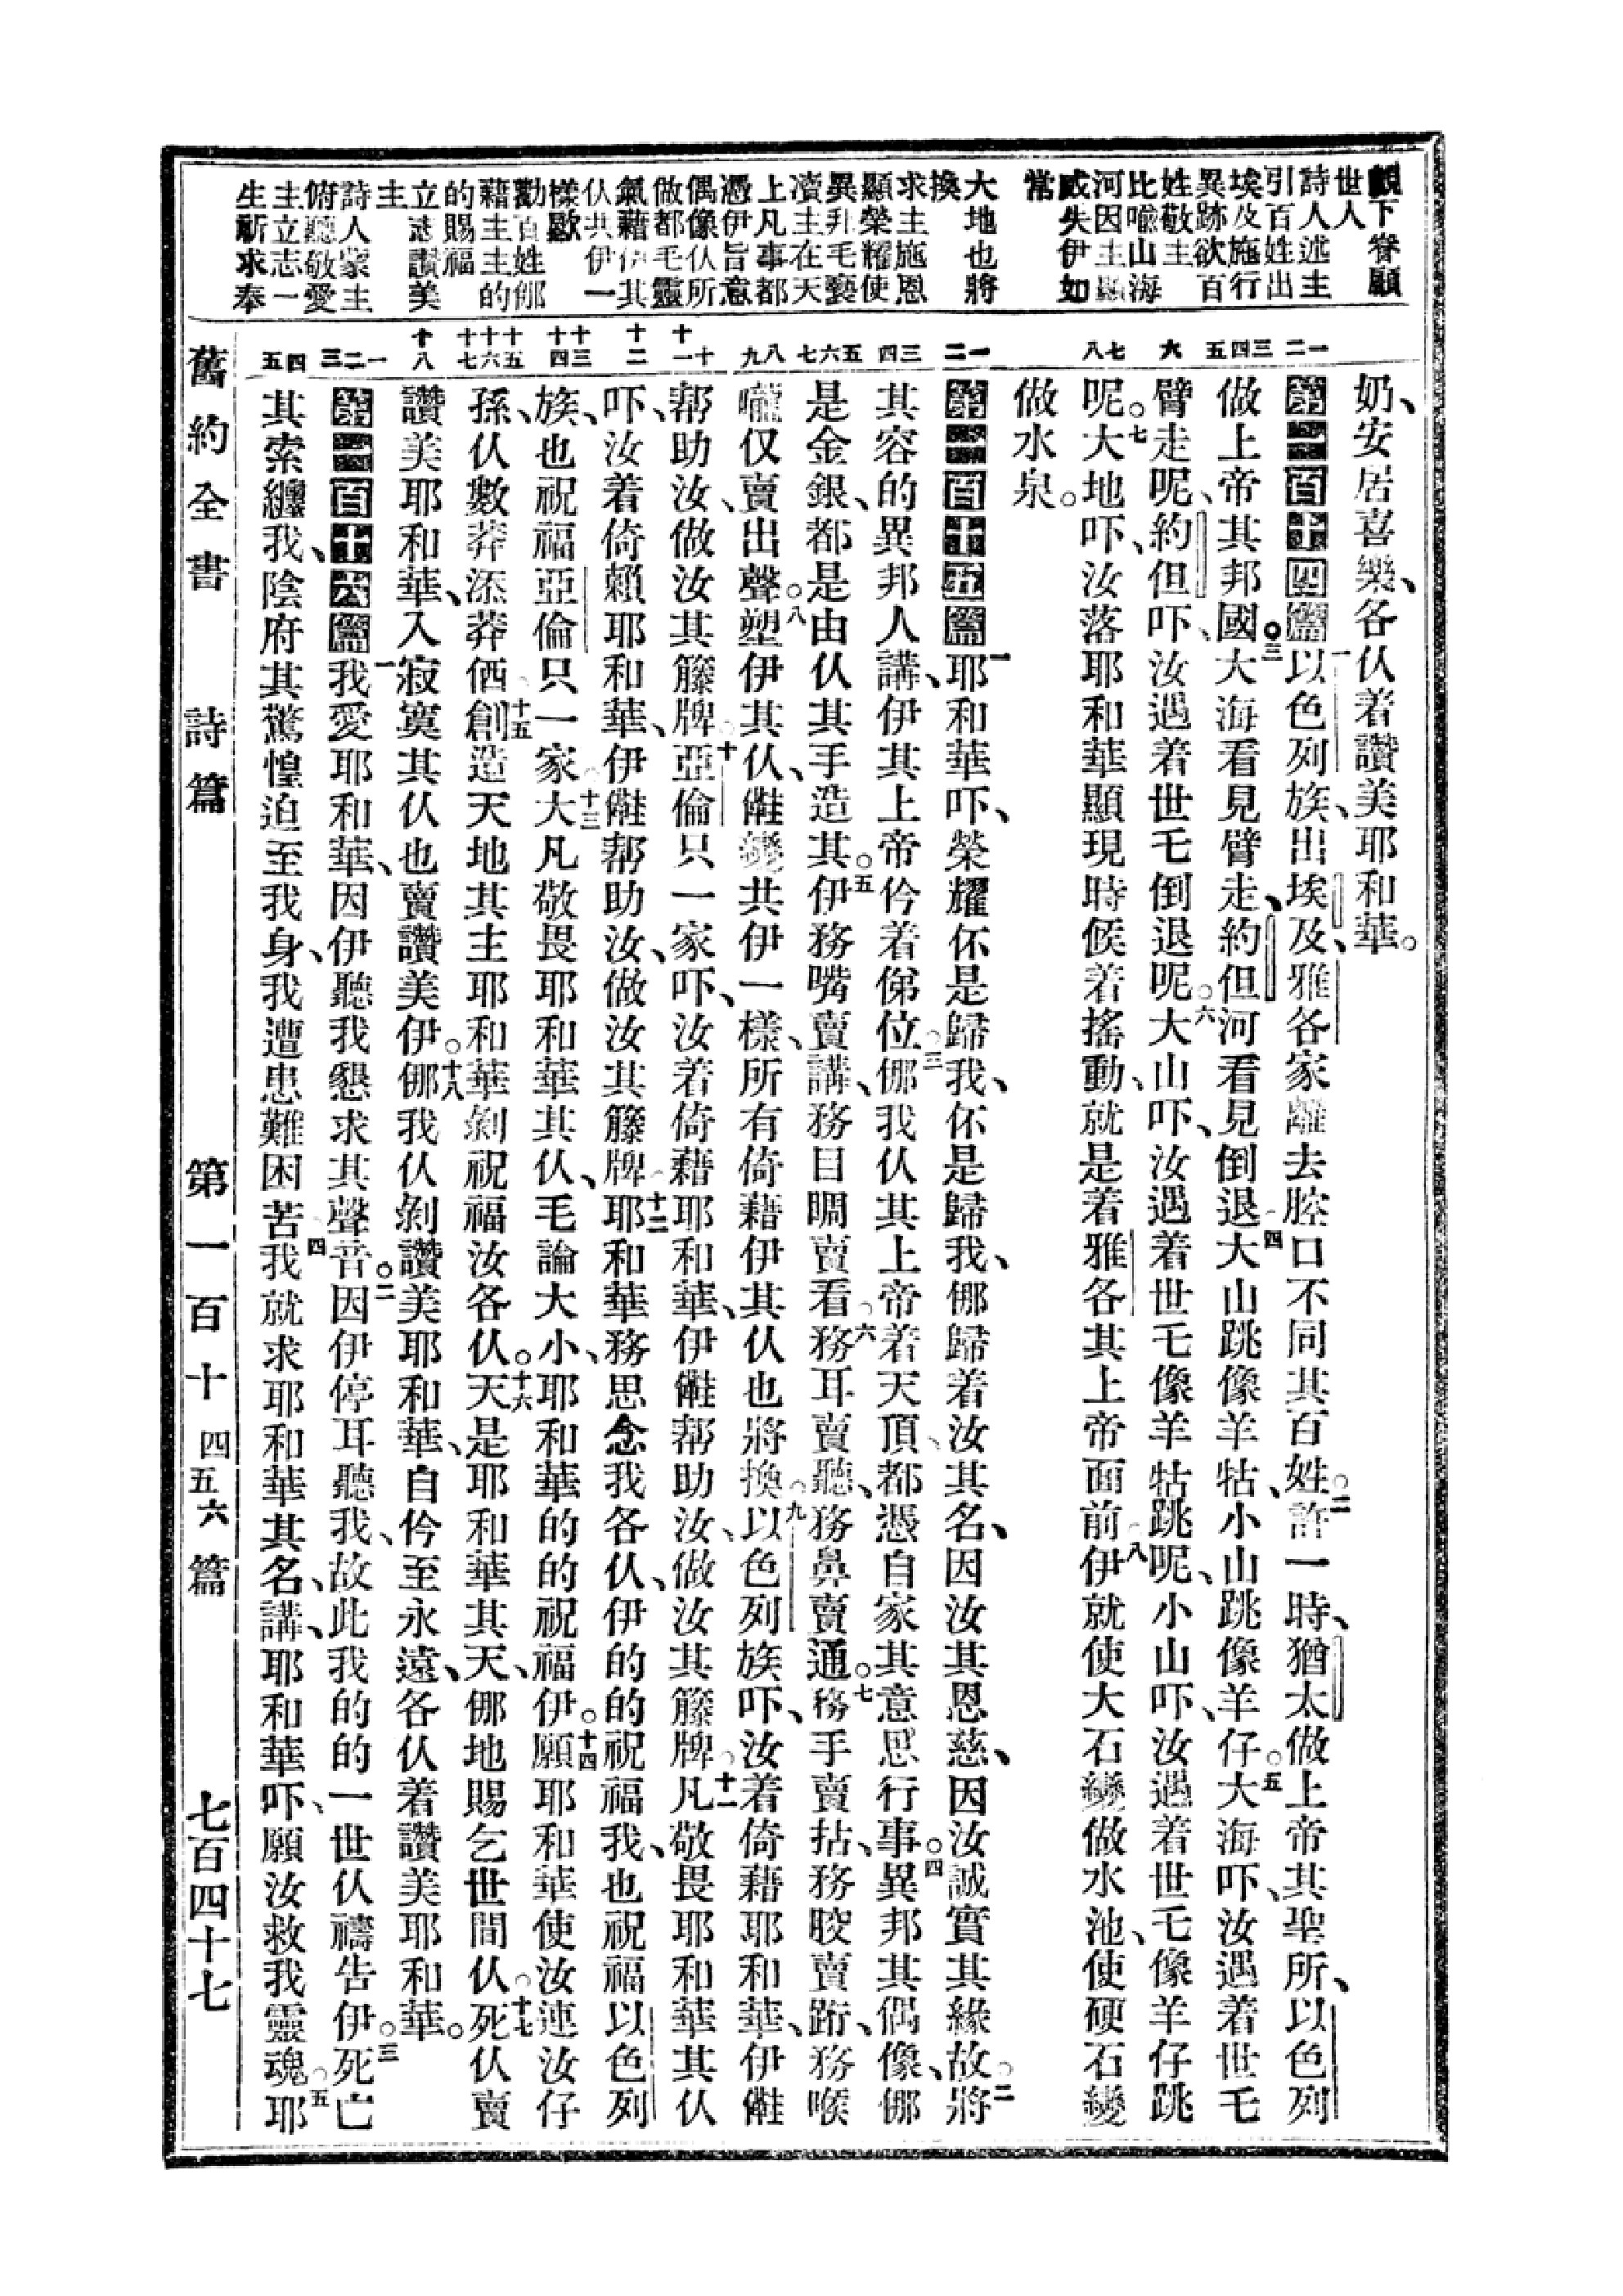 觀下眷顧
世人
詩人述主
引百姓出
埃及施行
異跡欲百
姓敬主
比喻山海
河因主顯
威失伊如
常
大地也將
換
求主施恩
顯榮耀使
異邦毛褻
瀆主在天
上凡事都
憑伊旨意
偶像仈所
做都毛靈
氣藉伊其
仈共伊一
樣歇
勸百姓㑚
藉主主的
的賜福
立志讚美
主
詩人蒙主
俯聽敬愛
主立志一
生祈求奉
一 二 三 四 五 六 七 八
一 二 三 四 五 六 七 八 九 十 十一 十二 十三 十四 十五 十六 十七 十八
一 二 三 四 五
奶、安居喜樂、各仈着讚美耶和華。
第一百十四篇 一以色列族、出埃及、雅各家離去腔口不同其百姓。二許一時、猶太做上帝其聖所、以色列
做上帝其邦國。三大海看見臂走、約但河看見倒退。四大山跳像羊牯、小山跳像羊仔。五大海吓、汝遇着世毛
臂走呢、約但吓、汝遇着世毛倒退呢。六大山吓、汝遇着世毛像羊牯跳呢、小山吓、汝遇着世毛像羊仔跳
呢。七大地吓、汝落耶和華顯現時候着搖動、就是着雅各其上帝面前。八伊就使大石變做水池、使硬石變
做水泉。
第一百十五篇 一耶和華吓、榮耀伓是歸我、伓是歸我、㑚歸着汝其名、因汝其恩慈、因汝誠實其緣故。二將
其容的異邦人講、伊其上帝仱着俤位。三㑚我仈其上帝着天頂、都憑自家其意思行事。四異邦其偶像、㑚
是金銀、都是由仈其手造其。五伊務嘴賣講、務目睭賣看。六務耳賣聽、務鼻賣通。七務手賣拈、務骹賣跘、務喉
嚨仅賣出聲。八塑伊其仈、㒁變共伊一樣、所有倚藉伊其仈也將換。九以色列族吓、汝着倚藉耶和華、伊㒁
幇助汝、做汝其籐牌。十亞倫只一家吓、汝着倚藉耶和華、伊㒁幇助汝、做汝其籐牌。十一凡敬畏耶和華其仈
吓、汝着倚賴耶和華、伊㒁幇助汝、做汝其籐牌。十二耶和華務思念我各仈、伊的的祝福我、也祝福以色列
族、也祝福亞倫只一家。十三大凡敬畏耶和華其仈、毛論大小、耶和華的的祝福伊。十四願耶和華使汝連汝仔
孫、仈數莽添莽価。十五創造天地其主耶和華剝祝福汝各仈。十六天是耶和華其天、㑚地賜乞世間仈。十七死仈賣
讚美耶和華、入寂寞其仈也賣讚美伊。十八㑚我仈剝讚美耶和華、自仱至永遠、各仈着讚美耶和華。
第一百十六篇 一我愛耶和華、因伊聽我懇求其聲音。二因伊停耳聽我、故此我的的一世仈禱告伊。三死亡
其索纏我、陰府其驚惶迫至我身、我遭患難困苦。四我就求耶和華其名、講、耶和華吓、願汝救我靈魂。五耶
舊約全書 詩篇 第一百十四五六篇 七百四十七